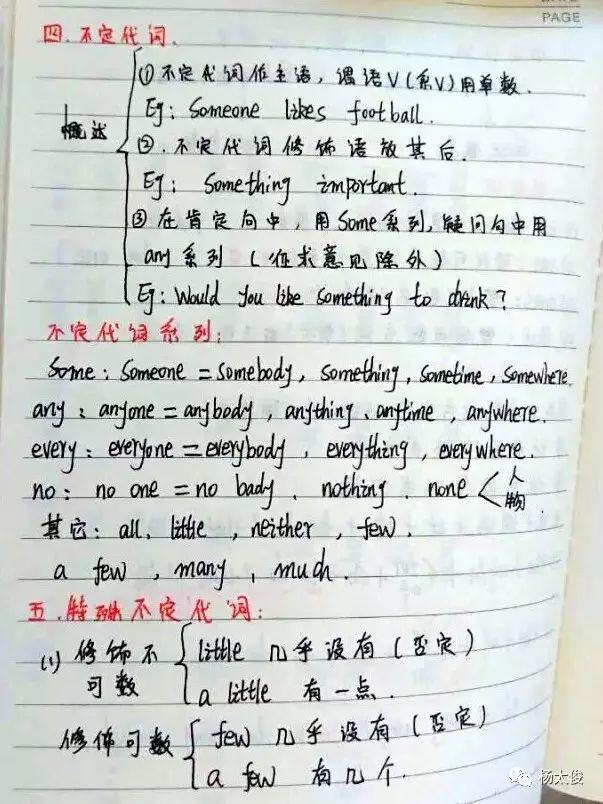 PAGE
四.不定代词.
概述
①不定代词作主语,谓语V(系V)用单数.
Eg: Someone likes football.
②.不定代词修饰语放其后.
Eg: Something important.
③在肯定句中,用Some系列,疑问句中用
any系列(征求意见除外)
Eg: Would you like something to drink?
不定代词系列:
Some: Someone = Somebody, something, sometime, somewhere.
any: anyone = anybody, anything, anytime, anywhere.
every: everyone = everybody, everything, everywhere.
no: no one = no bady. nothing. none < 人
物
其它: all. little, neither, few.
a few, many, much.
五.特殊不定代词:
(1) 修饰不可数
little 几乎没有(否定)
a little 有一点.
修饰可数
few 几乎没有(否定)
a few 有几个.
杨太俊